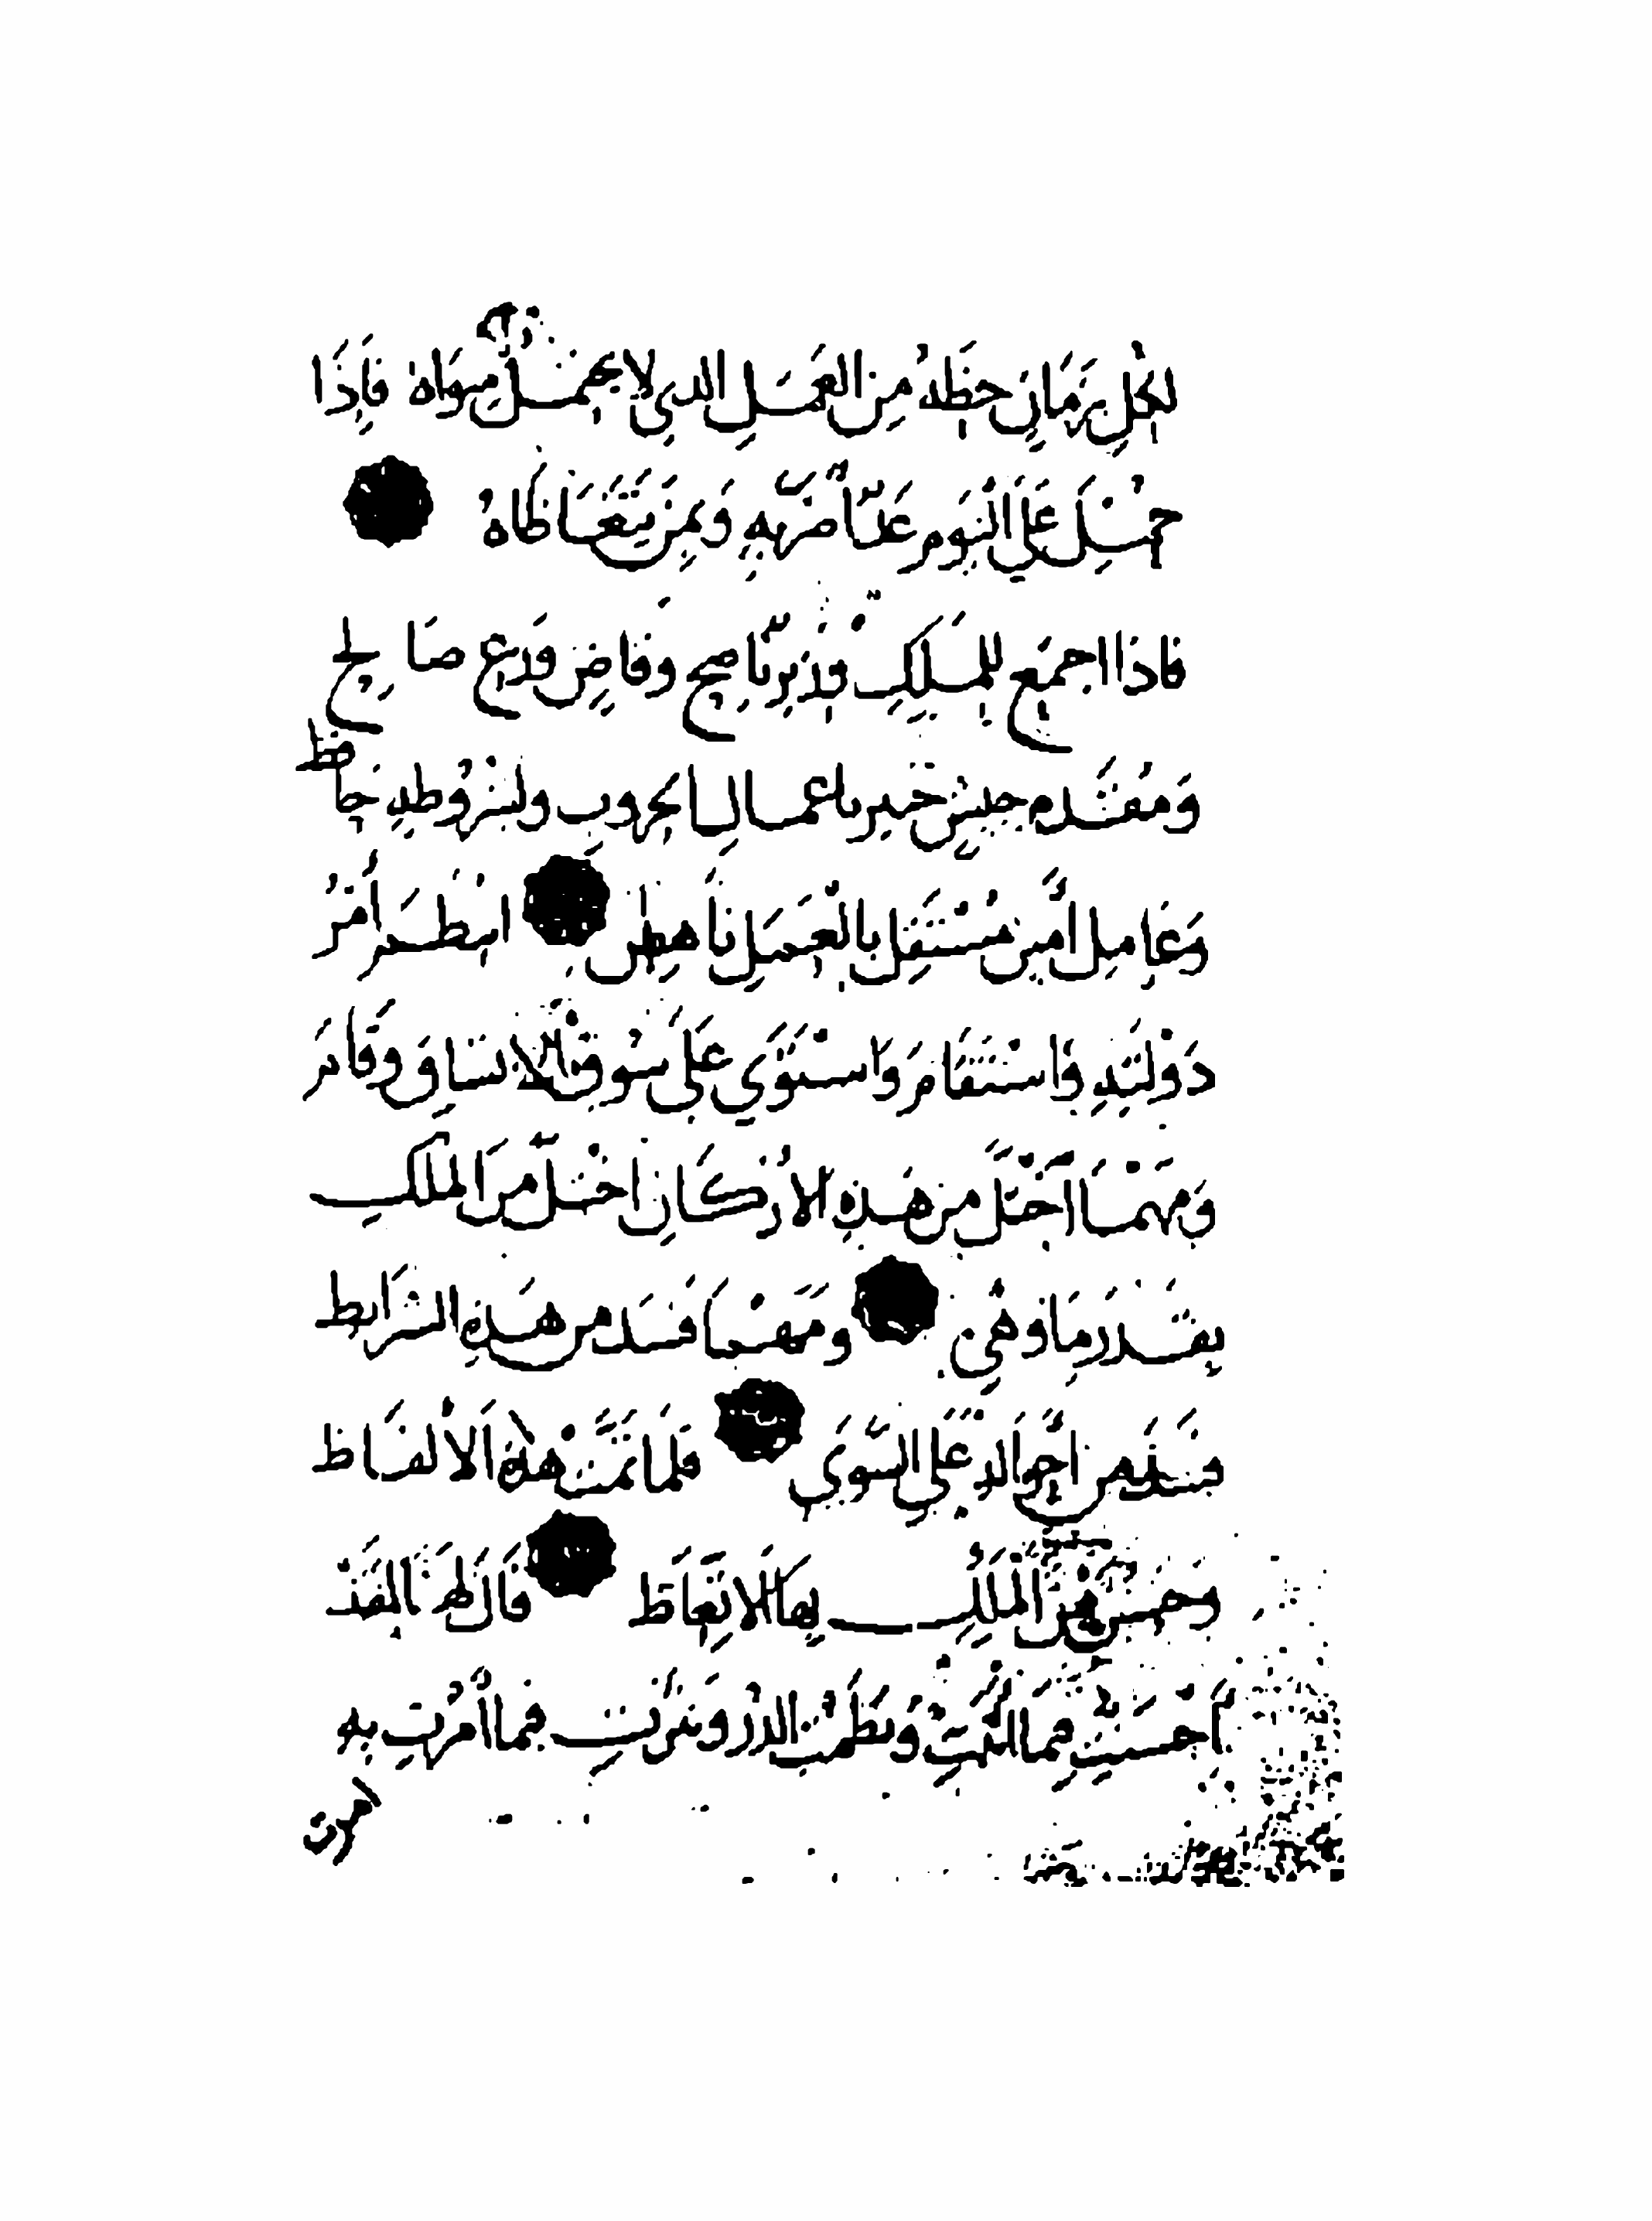 لِكُلِّ زَمَانٍ حَظُّهُ مِنَ العَمَلِ الذي لا يحمل سِوَاهُ فَإِذَا
حُمِلَ عَلَى اليَوْمِ عَادَ ضَرَّ بِهِ وَبِمَنْ يَتَعَاطَاهُ
فاذا اجتمع للملك وزير ناصح وقاضٍ ورع صالح
وَمُقَدَّم جيش خبير باعمال الحروب ولشروطه حافظ
وَعَامِل أَمين مُسْتَقِل بِالْعَمَلِ نَاهِض انْتَظَمَ أَمْرُ
دَوْلَتِهِ وَاسْتَقَامَ وَاسْتَوَى عَلَى سُوقِ الاتساق وَقَامَ
وَمَهْمَا اخْتَلَّ مِن هَذِهِ الأركان اختل من الملك
بقدر ما وهى ومهما فسد من هذه الشرايط
فسد من احواله على السوى فلما تمت هذه الالفاظ
وحسن من الملك بها الاتعاظ قال لها لقد
أحسنت فيما قلت ونظمت الدر ونثرت فيما أمرت به